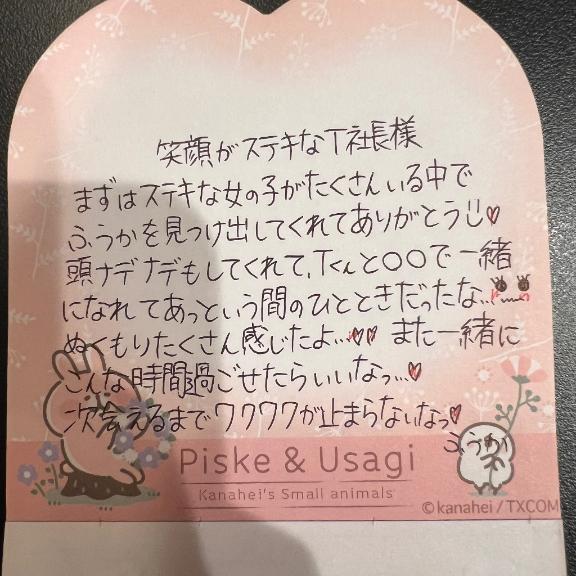 笑顔がステキなT社長様
まずはステキな女の子がたくさんいる中で
ふうかを見つけ出してくれてありがとう
頭ナデナデもしてくれて、Tくんと〇〇で一緒
になれてあっという間のひとときだったな…
ぬくもりたくさん感じたよ…♥♥ また一緒に
こんな時間過ごせたらいいなっ…♥
次会えるまでワクワクが止まらないなっ♥
ふうか
Piske & Usagi
Kanahei's Small animals
©kanahei / TXCOM